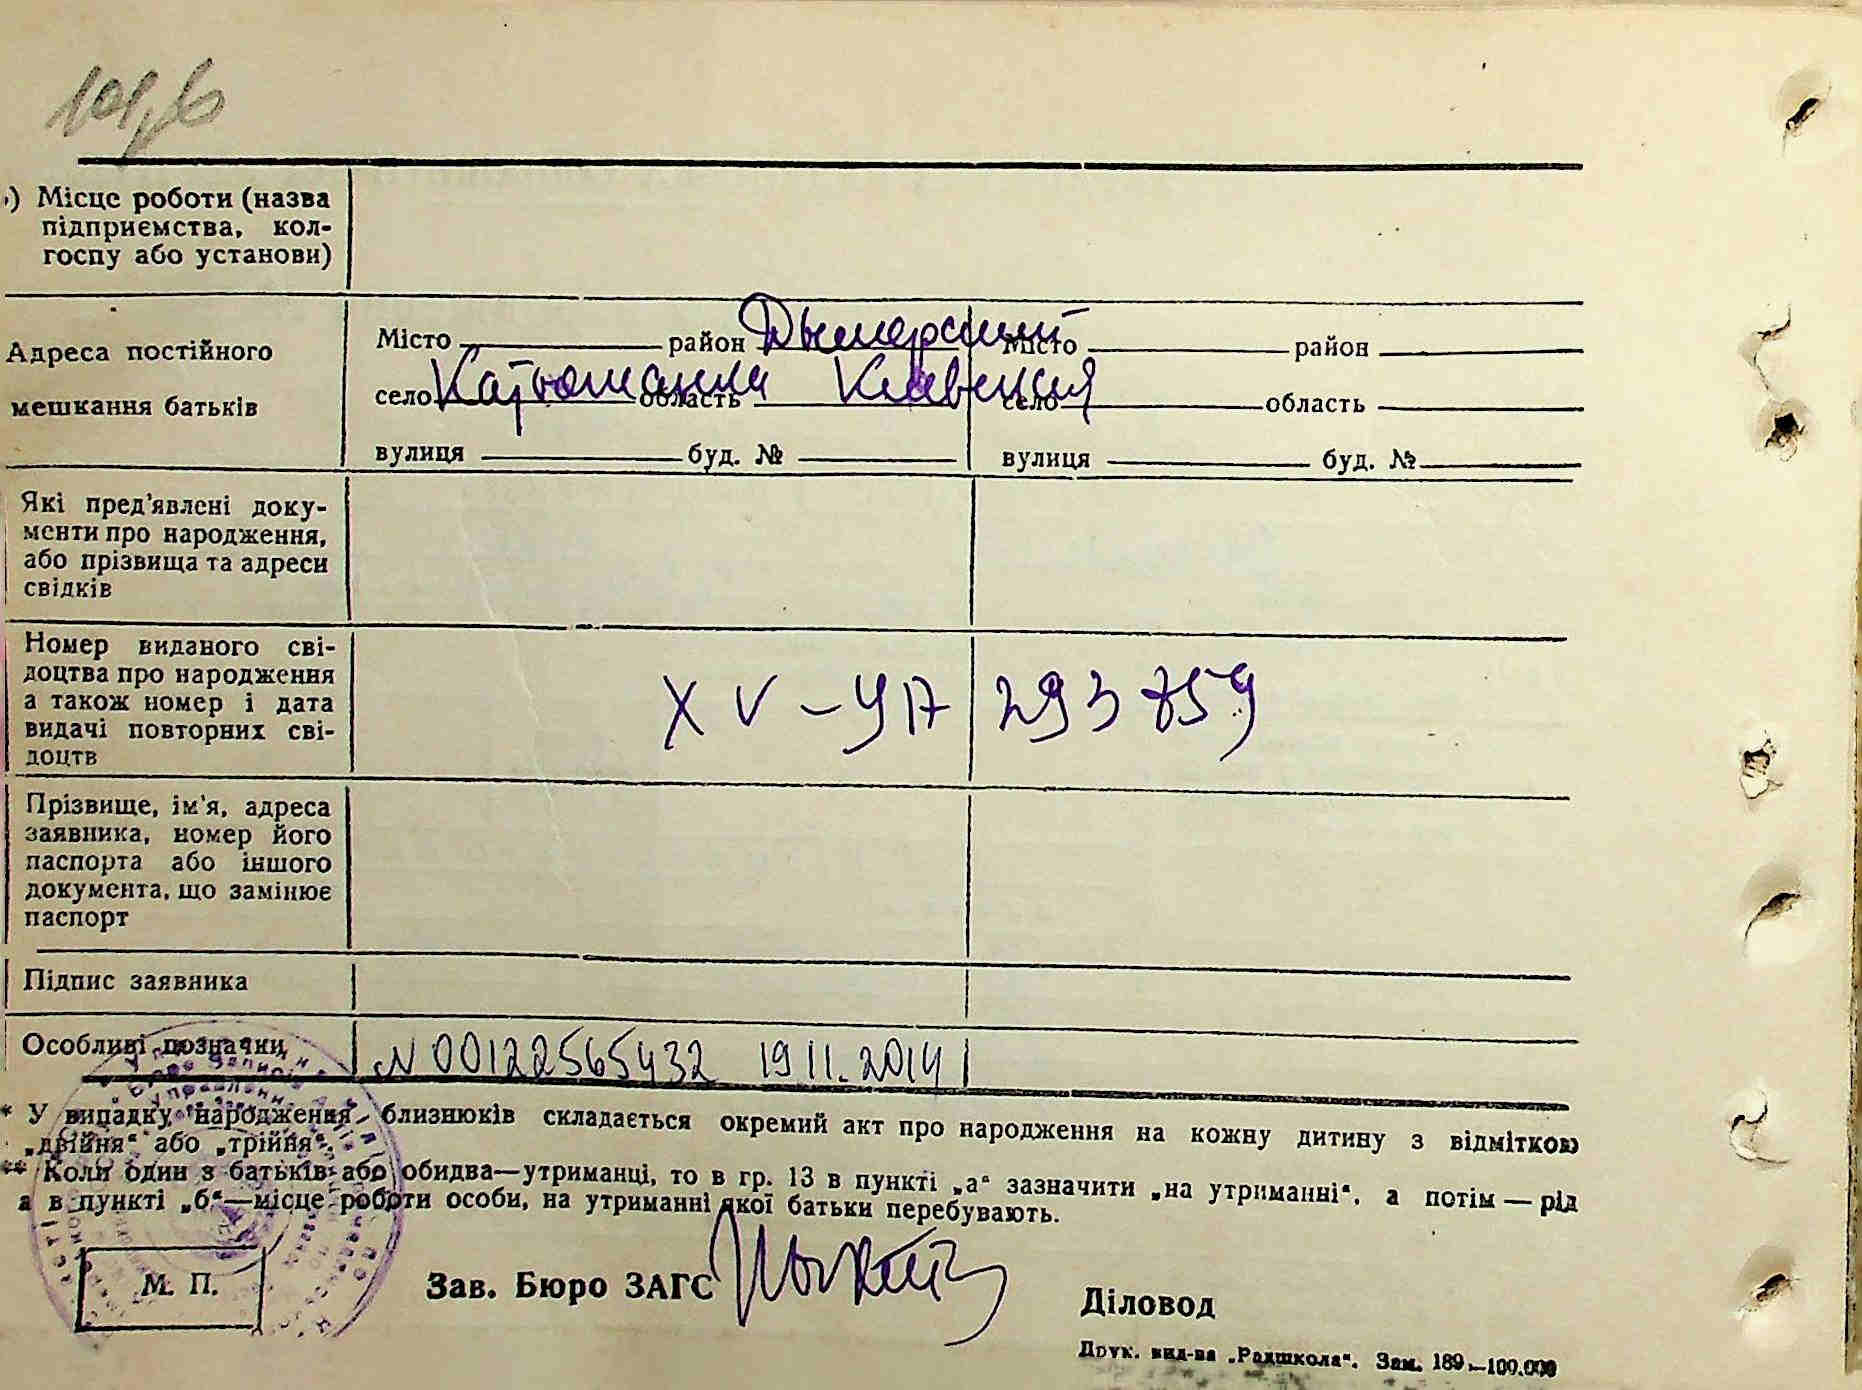 б) Місце роботи (назва
підприємства, кол-
госпу або установи)
Адреса постійного
мешкання батьків
Місто район Дымерский Місто район
село Катюжанка область Киевская село область
вулиця буд. № вулиця буд. №
Які пред'явлені доку-
менти про народження,
або прізвища та адреси
свідків
Номер виданого сві-
доцтва про народження
а також номер і дата
видачі повторних сві-
доцтв
XV-УА 293859
Прізвище, ім'я, адреса
заявника, номер його
паспорта або іншого
документа, що замінює
паспорт
Підпис заявника
Особливі позначки
N 00122565432 19.11.2014
* У випадку, народження близнюків складається окремий акт про народження на кожну дитину з відміткою
„двійня“ або „трійня“.
** Коли один з батьків або обидва—утриманці, то в гр. 13 в пункті „а“ зазначити „на утриманні“, а потім — рід
а в пункті „б“—місце роботи особи, на утриманні якої батьки перебувають.
М. П.
Зав. Бюро ЗАГС
Діловод
Друк. вид-ва „Радшкола“. Зам. 189—100.000